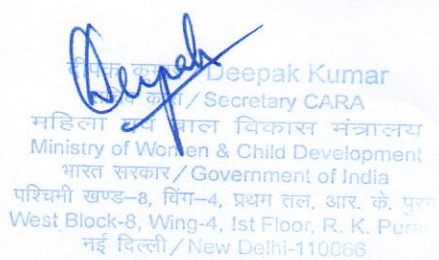 Deepak
दीपक कुमार / Deepak Kumar
सचिव कारा / Secretary CARA
महिला एवं बाल विकास मंत्रालय
Ministry of Women & Child Development
भारत सरकार / Government of India
पश्चिमी खण्ड–8, विंग–4, प्रथम तल, आर. के. पुरम
West Block-8, Wing-4, Ist Floor, R. K. Pura
नई दिल्ली / New Delhi-110066